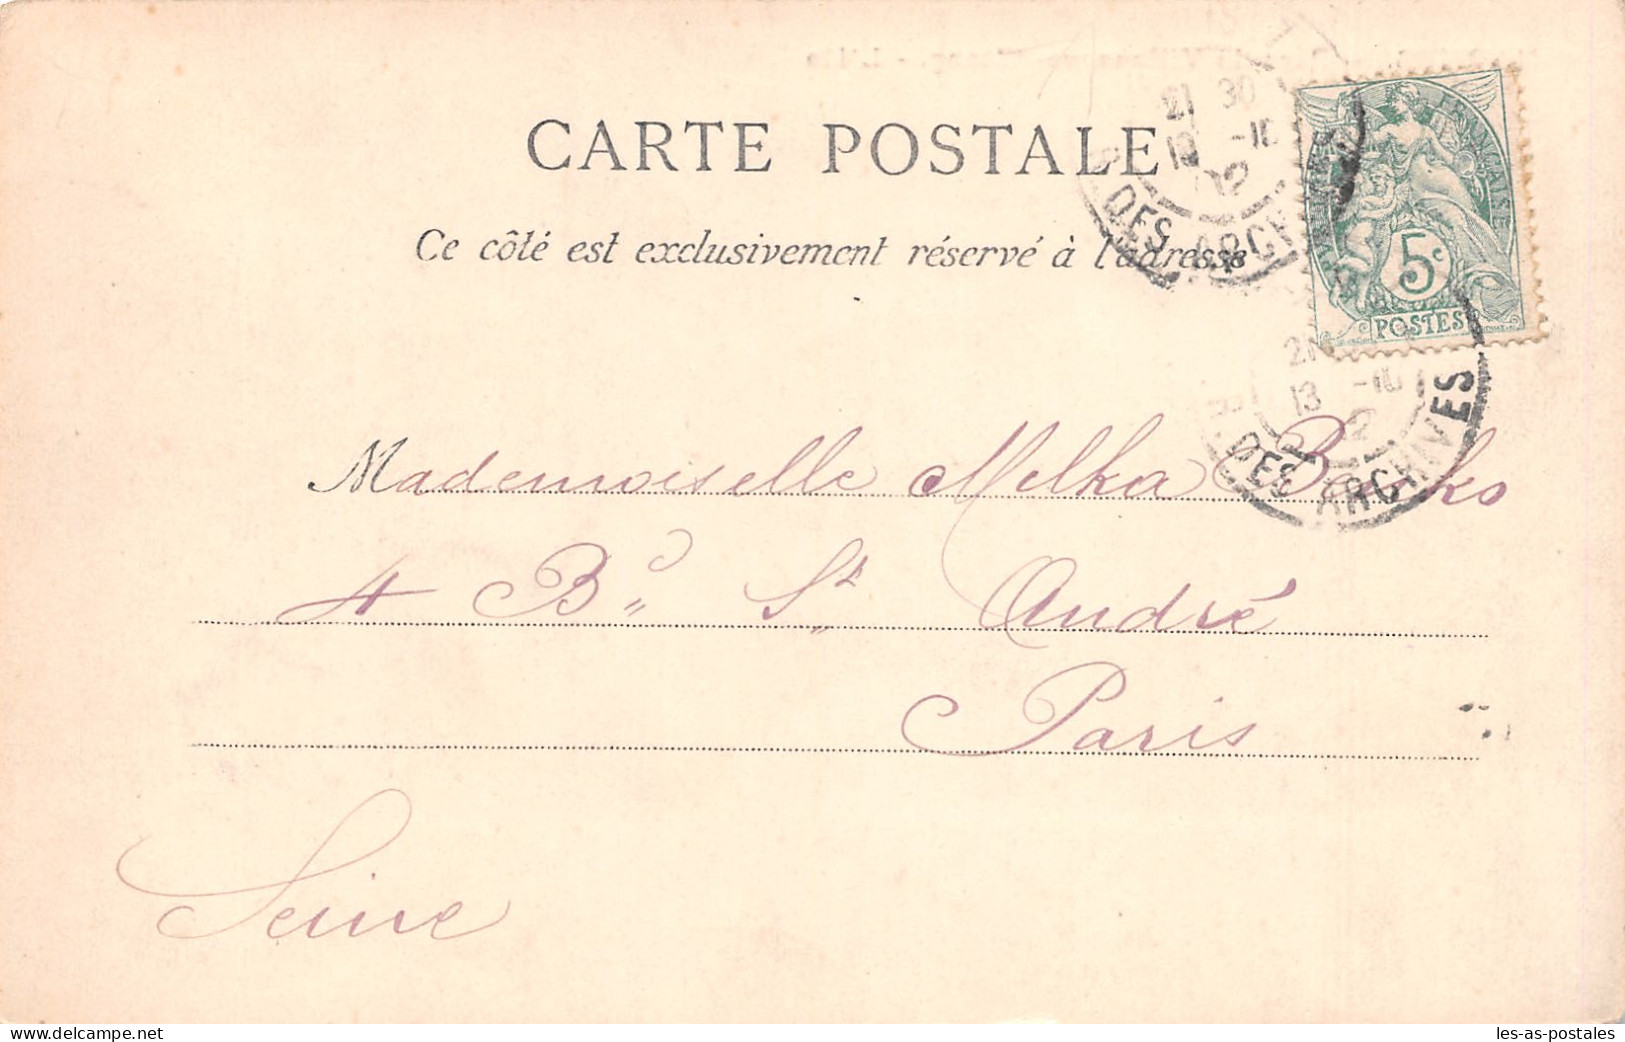 CARTE POSTALE
Ce côté est exclusivement réservé à l'adresse
21 30
13 -10
02
DES ARCHIVES
RÉPUBLIQUE FRANÇAISE
5c
POSTES
21
13 -10
02
DES ARCHIVES
Mademoiselle Melka
4 Bd St André
Paris
Seine
les-as-postales